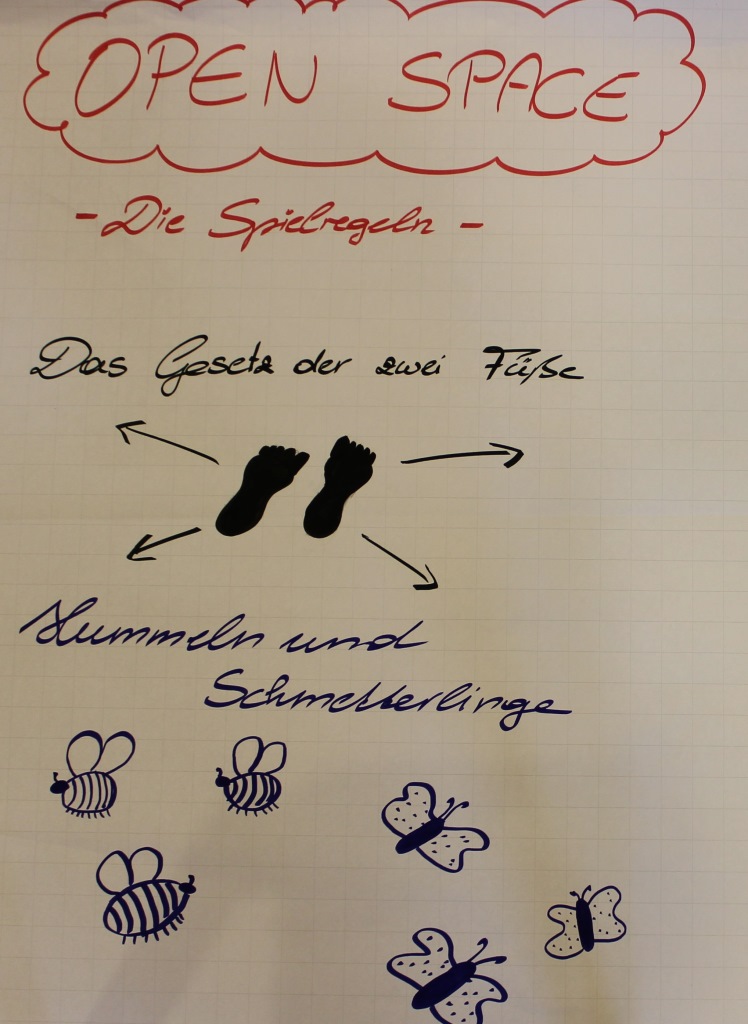 OPEN SPACE
- Die Spielregeln -
Das Gesetz der zwei Füße
Hummeln und
Schmetterlinge